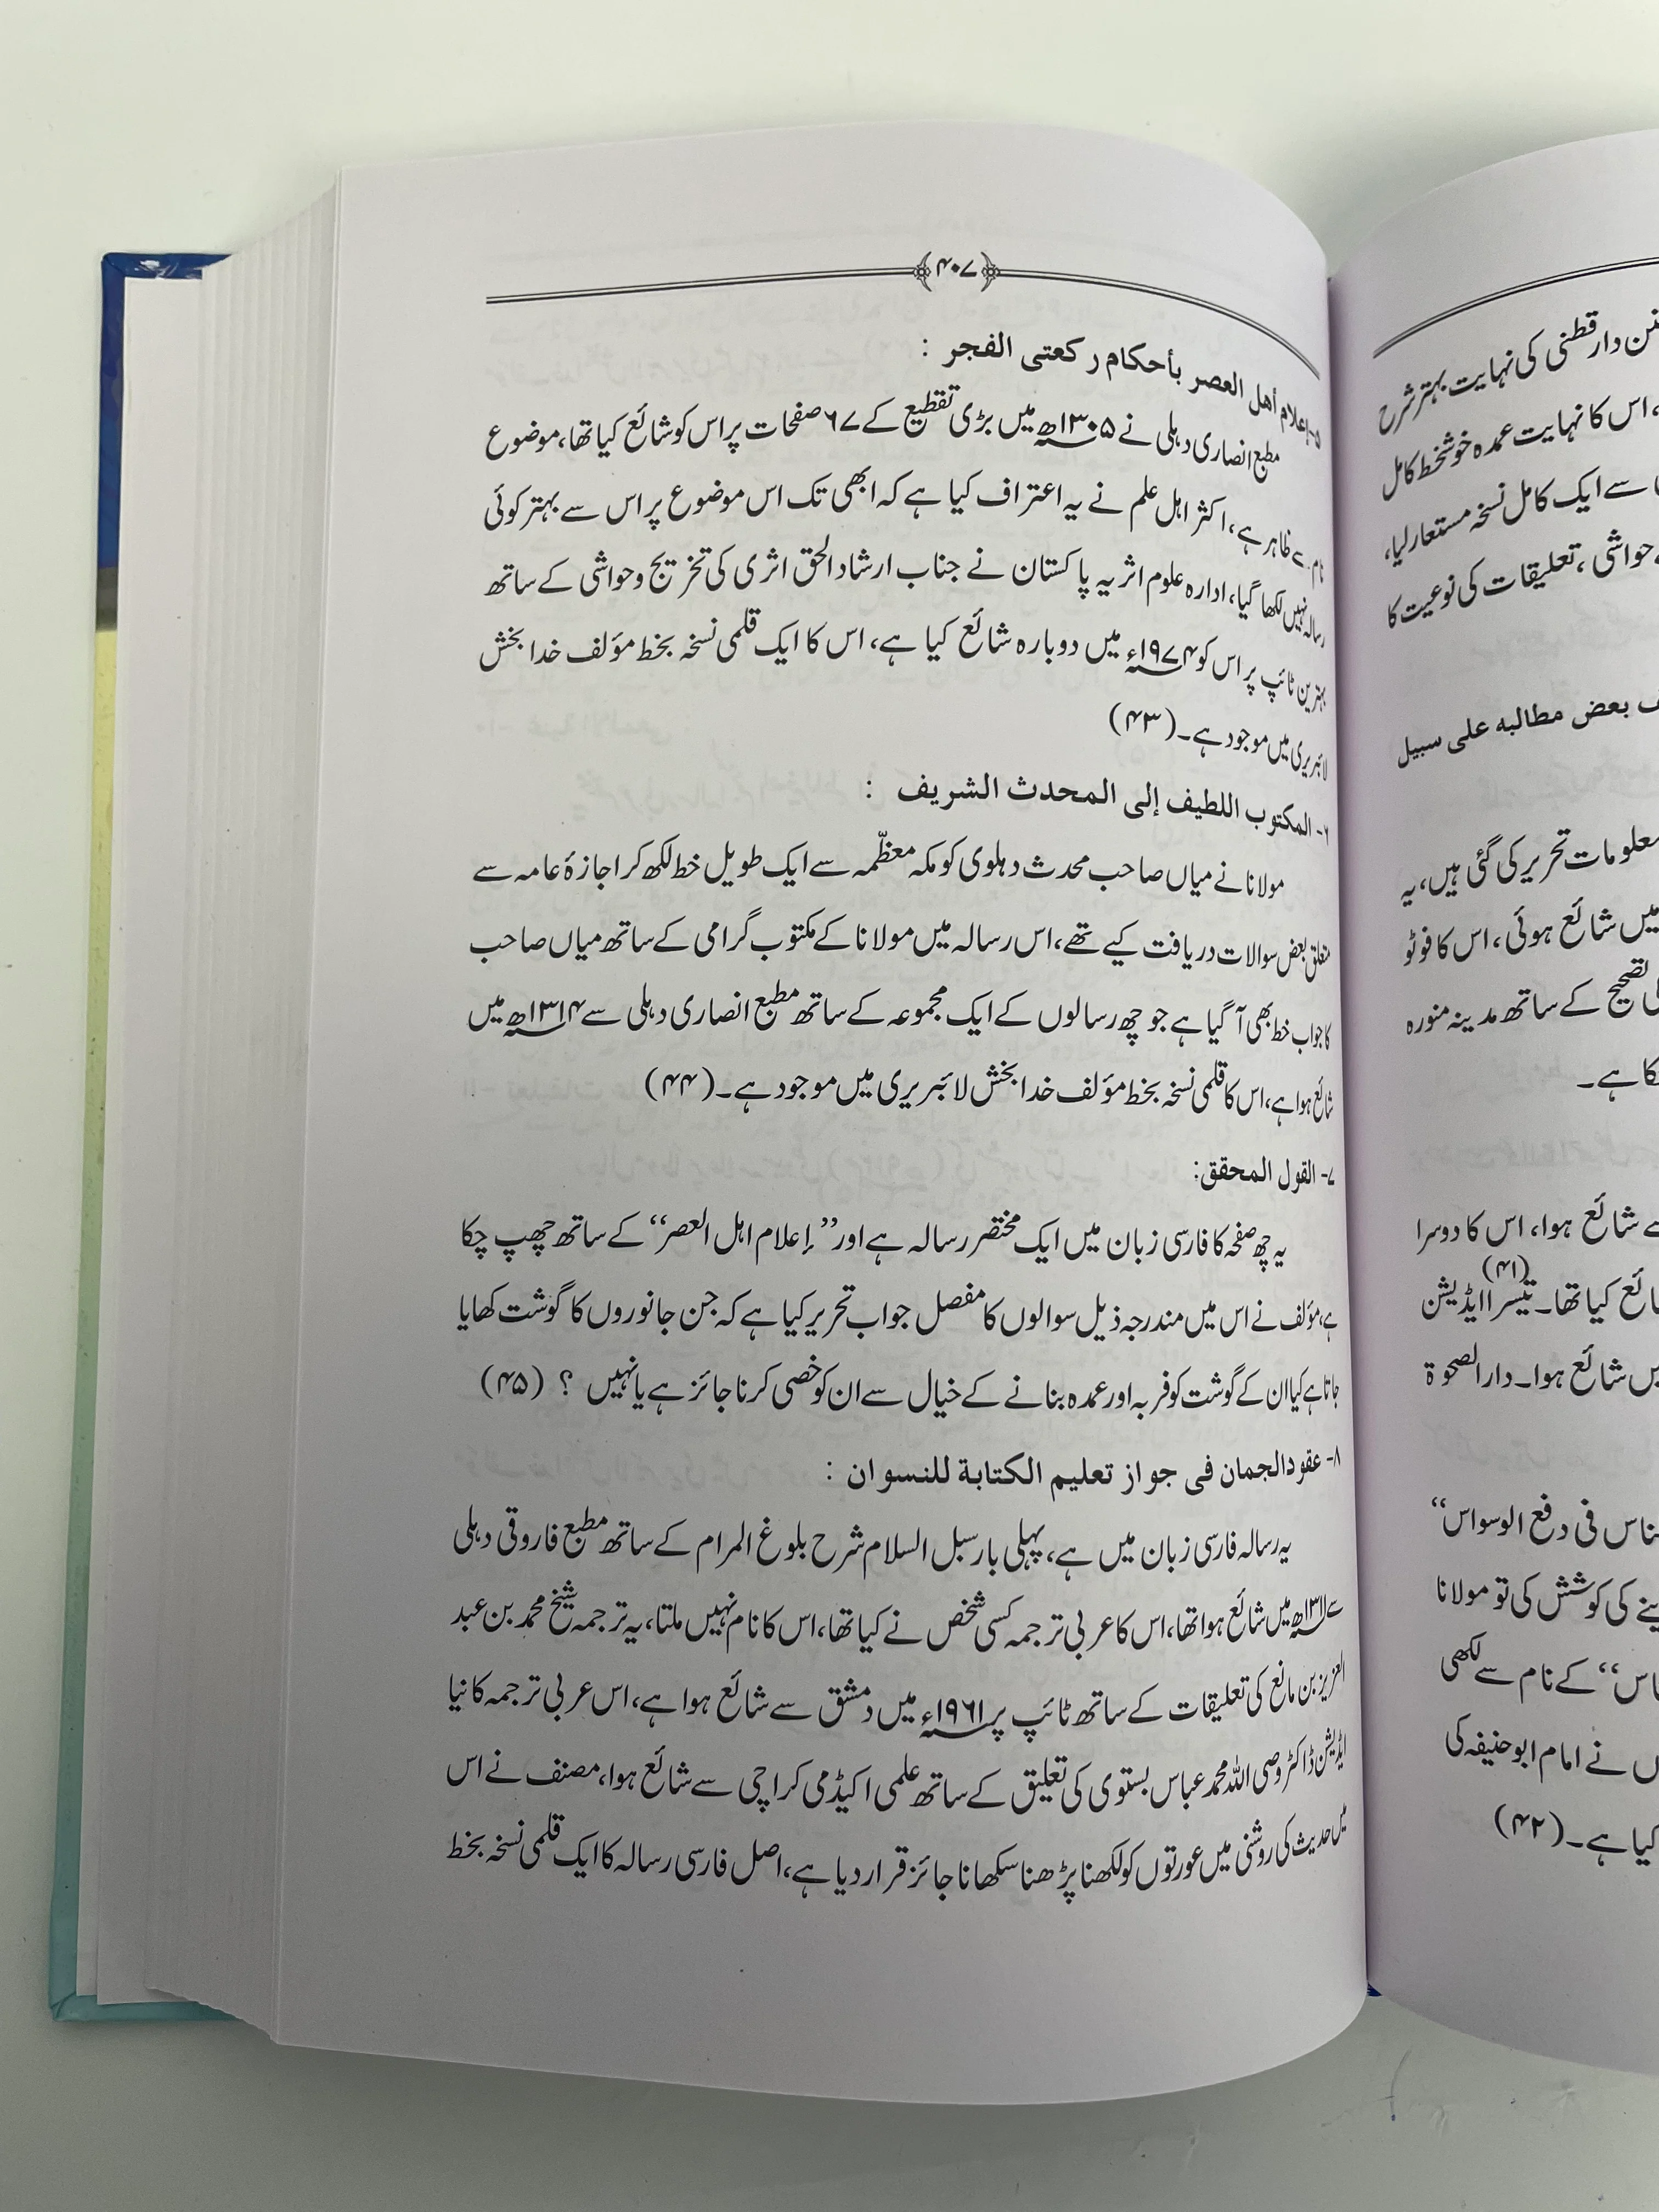 ۴۰۷
۵- إعلام أهل العصر بأحكام ركعتى الفجر :
مطبع انصاری دہلی نے ۱۳۰۵ھ میں بڑی تقطیع کے ۶۷ صفحات پر اس کو شائع کیا تھا، موضوع
نام سے ظاہر ہے، اکثر اہل علم نے یہ اعتراف کیا ہے کہ ابھی تک اس موضوع پر اس سے بہتر کوئی
رسالہ نہیں لکھا گیا، ادارہ علوم اثریہ پاکستان نے جناب ارشاد الحق اثری کی تخریج وحواشی کے ساتھ
بہترین ٹائپ پر اس کو ۱۹۷۴ء میں دوبارہ شائع کیا ہے، اس کا ایک قلمی نسخہ بخط مؤلف خدا بخش
لائبریری میں موجود ہے۔ (۴۳)
۶- المكتوب اللطيف إلى المحدث الشريف :
مولانا نے میاں صاحب محدث دہلوی کو مکہ معظّمہ سے ایک طویل خط لکھ کر اجازۂ عامہ سے
متعلق بعض سوالات دریافت کیے تھے، اس رسالہ میں مولانا کے مکتوب گرامی کے ساتھ میاں صاحب
کا جواب خط بھی آگیا ہے جو چھ رسالوں کے ایک مجموعہ کے ساتھ مطبع انصاری دہلی سے ۱۳۱۴ھ میں
شائع ہوا ہے، اس کا قلمی نسخہ بخط مؤلف خدا بخش لائبریری میں موجود ہے۔ (۴۴)
۷- القول المحقق:
یہ چھ صفحہ کا فارسی زبان میں ایک مختصر رسالہ ہے اور ”إعلام اہل العصر“ کے ساتھ چھپ چکا
ہے، مؤلف نے اس میں مندرجہ ذیل سوالوں کا مفصل جواب تحریر کیا ہے کہ جن جانوروں کا گوشت کھایا
جاتا ہے کیا ان کے گوشت کو فربہ اور عمدہ بنانے کے خیال سے ان کو خصی کرنا جائز ہے یا نہیں ؟ (۴۵)
۸- عقود الجمان فى جواز تعليم الكتابة للنسوان :
یہ رسالہ فارسی زبان میں ہے، پہلی بار سبل السلام شرح بلوغ المرام کے ساتھ مطبع فاروقی دہلی
سے ۱۳۱۱ھ میں شائع ہوا تھا، اس کا عربی ترجمہ کسی شخص نے کیا تھا، اس کا نام نہیں ملتا، یہ ترجمہ شیخ محمد بن عبد
العزیز بن مانع کی تعلیقات کے ساتھ ٹائپ پر ۱۹۶۱ء میں دمشق سے شائع ہوا ہے، اس عربی ترجمہ کا نیا
ایڈیشن ڈاکٹر وصی اللہ محمد عباس بستوی کی تعلیق کے ساتھ علمی اکیڈمی کراچی سے شائع ہوا، مصنف نے اس
میں حدیث کی روشنی میں عورتوں کو لکھنا پڑھنا سکھانا جائز قرار دیا ہے، اصل فارسی رسالہ کا ایک قلمی نسخہ بخط
دار قطنی کی نہایت بہتر شرح
، اس کا نہایت عمدہ خوشخط کامل
سے ایک کامل نسخہ مستعار لیا،
حواشی، تعلیقات کی نوعیت کا
بعض مطالبه على سبيل
معلومات تحریر کی گئی ہیں، یہ
میں شائع ہوئی، اس کا فوٹو
تصحیح کے ساتھ مدینہ منورہ
ہے۔
شائع ہوا، اس کا دوسرا
کیا تھا۔ (۴۱) تیسرا ایڈیشن
شائع ہوا۔ دار الصحوۃ
فی دفع الوسواس“
کی کوشش کی تو مولانا
“ کے نام سے لکھی
نے امام ابو حنیفہ کی
کیا ہے۔ (۴۲)